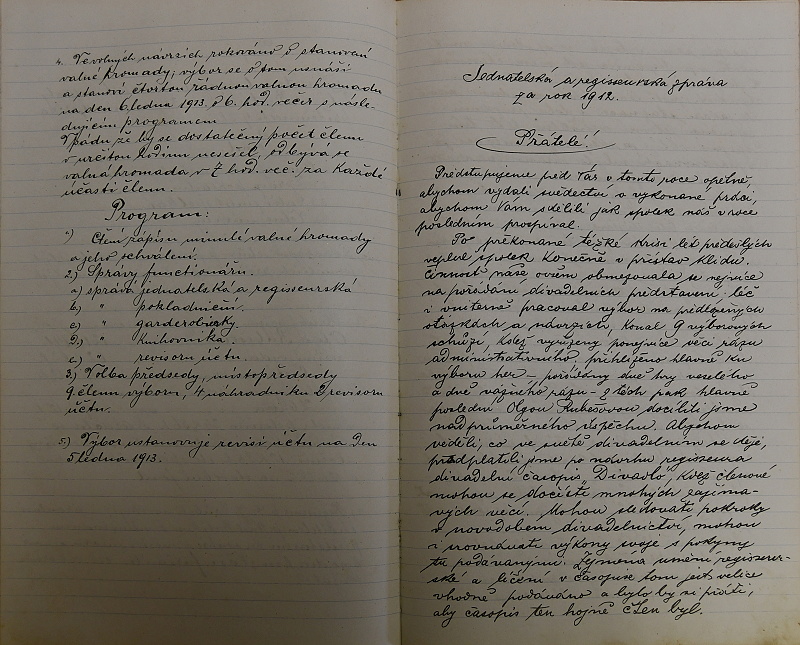 4. Ve volných návrzích rokováno o stanovení
valné hromady; výbor se o tom usnáší
a stanoví čtvrtou řádnou valnou hromadu
na den 6. ledna 1913. v 6. hod. večer s násle-
dujícím programem
V pádu že by se dostatečný počet členu
v určitou hodinu nesešel, odbývá se
valná hromada v 7 hod. več. za každé
účasti členu.
Program:
1) Čtení zápisu minulé valné hromady
a jeho schválení.
2.) Správy functionářu.
a) správa jednatelská a regisseurská
b) " pokladniční.
c) " garderobiérky.
d.) " knihovníka.
e) " revisoru účtu.
3.) Volba předsedy, místopředsedy
9 členu výboru, 4 náhradníku 2 revisoru
účtu.
5.) Výbor ustanovuje revisi účtu na den
5 ledna 1913.
Jednatelská a regisseurská zpráva
za rok 1912.
Přátelé!
Předstupujeme před Vás v tomto roce opětně,
abychom vydali svědectví o vykonané práci,
abychom Vám sdělili jak spolek náš v roce
posledním prospíval.
Po překonané těžké krisi let předešlých
veplul spolek konečně v přístav klidu.
Činnost naše ovšem obmezovala se nejvíce
na pořádání divadelních představení; leč
i vniterně pracoval výbor na předložených
otázkách a návrzích, konal 9 výborových
schůzí, kdež vyřízeny ponejvíce věci rázu
administrativního, přihlíženo hlavně ku
výboru her – pořádány dvě hry veselého
a dvě vážného rázu – z těch pak hlavně
poslední Olgou Rubešovou docílili jsme
nadprůměrného úspěchu. Abychom
věděli, co ve světě divadelním se děje,
předplatili jsme po návrhu regisseura
divadelní časopis „Divadlo", kdež členové
mohou se dočísti mnohých zajíma-
vých věcí. Mohou sledovati pokroky
v novodobém divadelnictví, mohou
i srovnávati výkony svoje s pokyny
tu podávanými. Zejména umění regisseur-
ské a líčení v časopise tom jest velice
vhodně podáváno a bylo by si přáti,
aby časopis ten hojně čten byl.